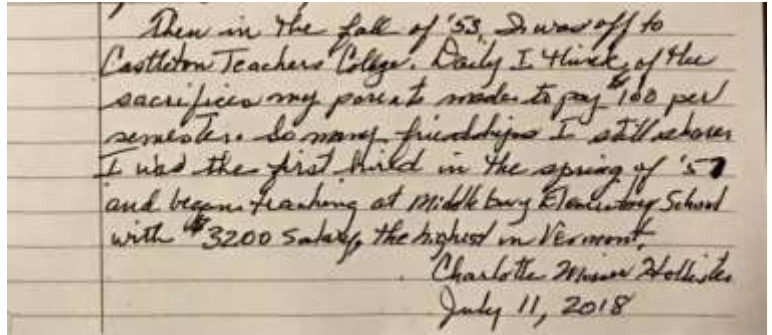 Then in the fall of '53, I was off to
Castleton Teachers College. Daily I think of the
sacrifices my parents made to pay $100 per
semester. So many friendships I still share.
I was the first hired in the spring of '57
and began teaching at Middlebury Elementary School
with $3200 salary, the highest in Vermont.
Charlotte Hollister
July 11, 2018